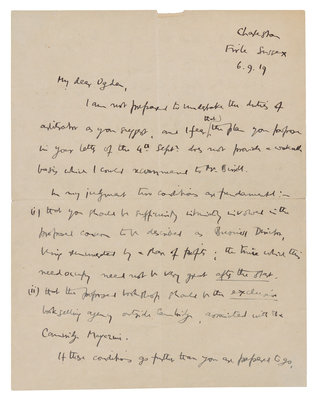 Charleston
Firle Sussex
6.9.19
My dear Ogden,
I am not prepared to undertake the duties of
arbitrator as you suggest, and I fear that the plan you propose
in your letter of the 4th Sept. does not provide a workable
basis which I could recommend to Mr.
In my judgment two conditions are fundamental:—
(i) that you should be sufficiently intimately involved in the
proposed concern to be described as Business Director,
being remunerated by a share of profits; the time which this
need occupy need not be very great after the start.
(ii) that the proposed bookshop should be the exclusive
bookselling agency outside Cambridge, associated with the
Cambridge Magazine.
If these conditions go further than you are prepared to go,